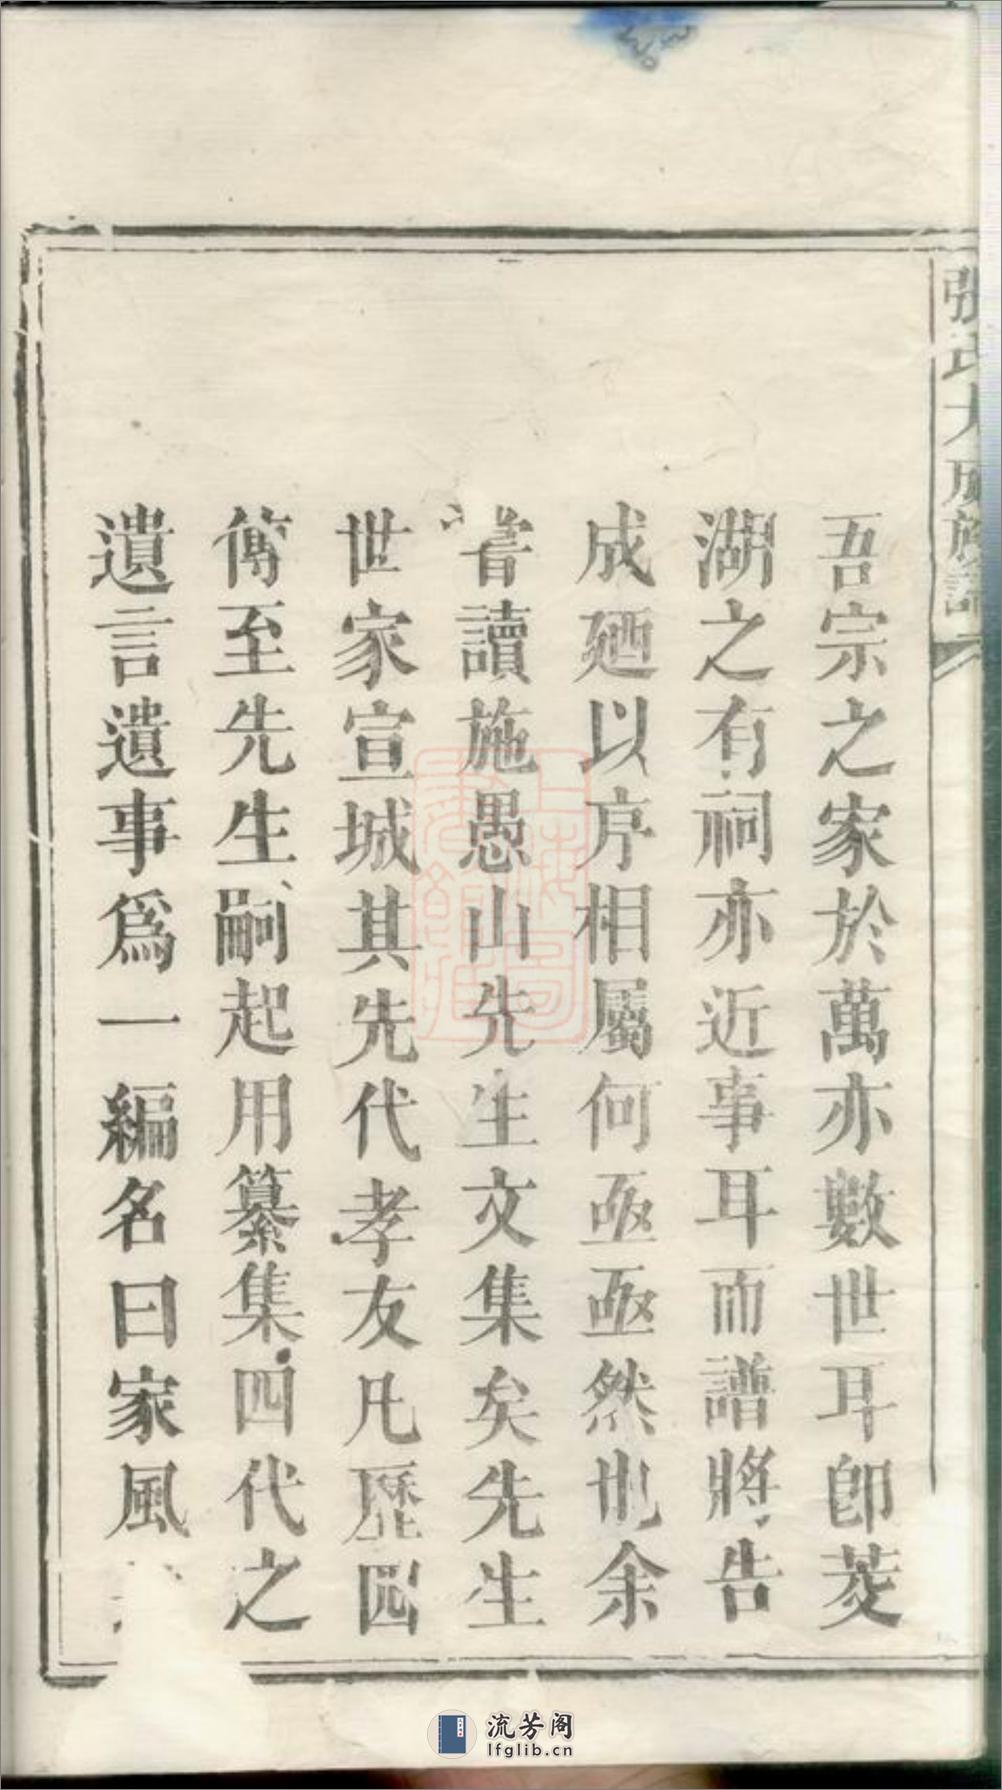 張氏大成族譜
吾宗之家於萬亦數世耳卽菱
湖之有祠亦近事耳而譜將告
成廼以序相屬何亟亟然也余
嘗讀施愚山先生文集矣先生
世家宣城其先代孝友凡歷四
傳至先生嗣起用纂集四代之
遺言遺事爲一編名曰家風
流芳阁
lfglib.cn